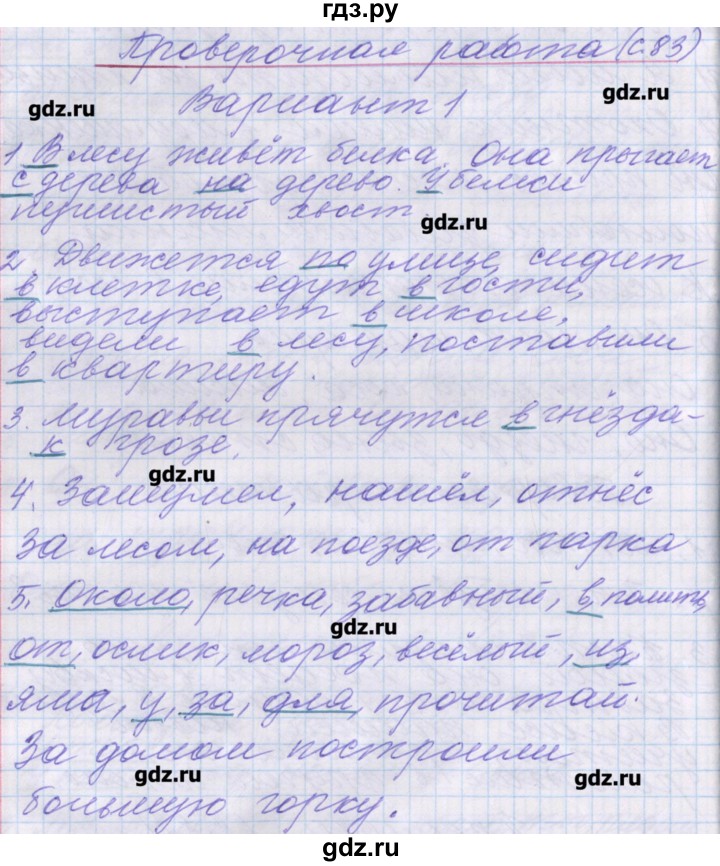 гдз.ру
Проверочная работа (с.83)
gdz.ru
gdz.ru
Вариант 1
1 В лесу живёт белка. Она прыгает
с дерева на дерево. У белки
пушистый хвост.
gdz.ru
2. Движется по улице, сидит
в клетке, едут в гости,
выступает в школе,
видели в лесу, поставили
в квартиру.
3. Муравьи прячутся в гнёзда-
к грозе.
gdz.ru
4. Зашумел, нашёл, отнёс
За лесом, на поезде, от парка
5. Около, речка, забавный, в, полить,
gdz.ru
от, ослик, мороз, весёлый, из,
яма, у, за, для, прочитай.
За домом построили
gdz.ru
gdz.ru
большую горку.
gdz.ru